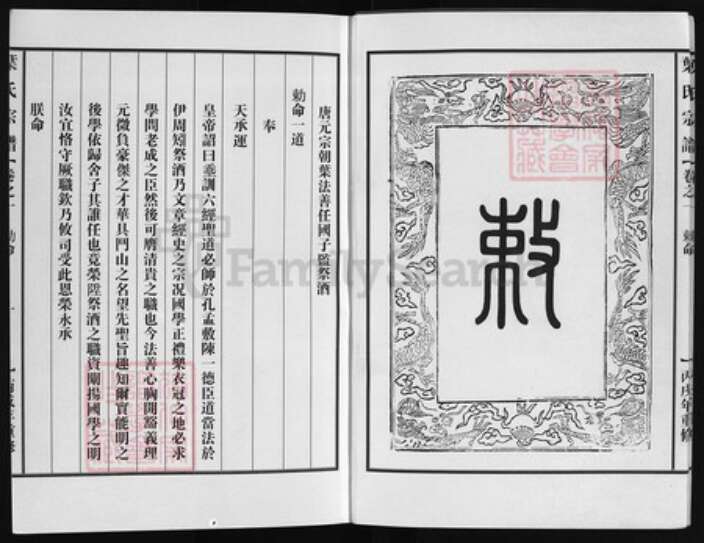 葉氏宗譜 卷之一 勅命
丙戌年重修
敕
唐元宗朝葉法善任國子監祭酒
勅命一道
奉
天承運
皇帝詔曰垂訓六經聖道必師於孔孟敷陳一德臣道當法於
伊周矧祭酒乃文章經史之宗况國學正禮樂衣冠之地必求
學問老成之臣然後可膺清貴之職也今法善心胸開豁義理
元微負豪傑之才華具鬥山之名望先聖旨趣知爾實能明之
後學依歸舍子其誰任也竟榮陞祭酒之職資闡揚國學之明
汝宜恪守厥職欽乃攸司受此恩榮永承
朕命
葉氏宗譜 卷之一 勅命
一
FamilySearch